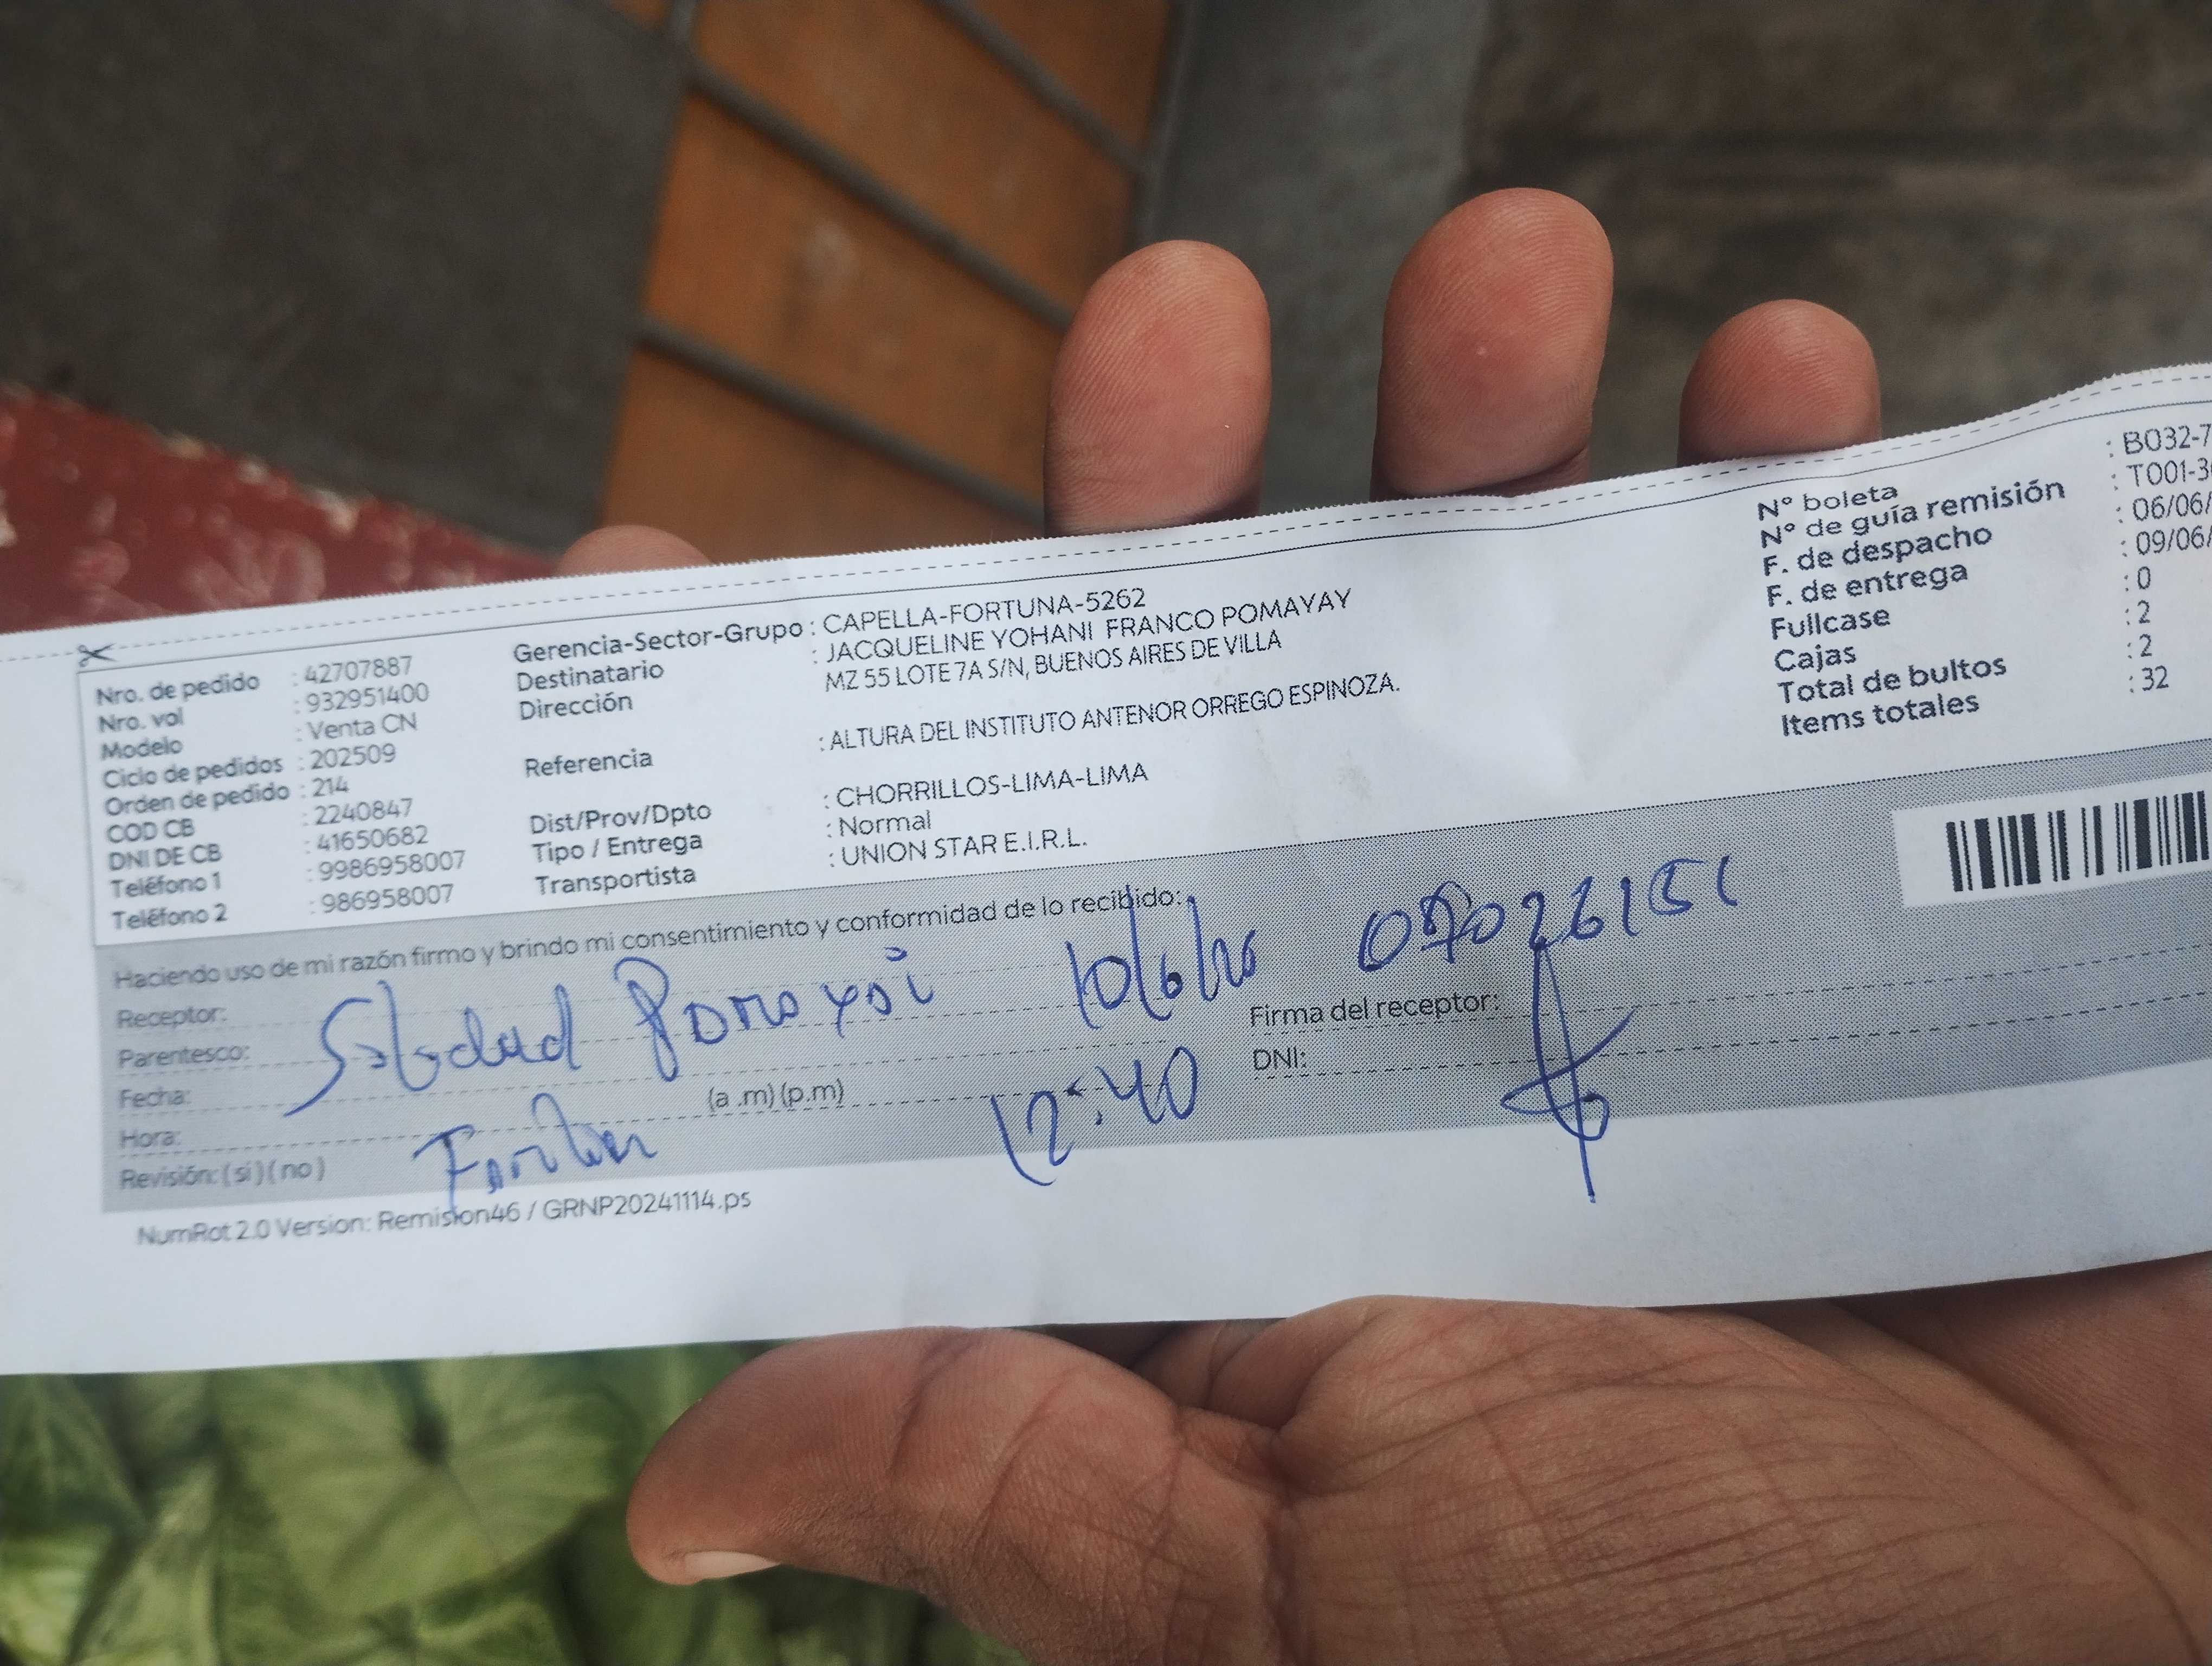 Nro. de pedido : 42707887
Nro. vol : 932951400
Modelo : Venta CN
Ciclo de pedidos : 202509
Orden de pedido : 214
COD CB : 2240847
DNI DE CB : 41650682
Teléfono 1 : 9986958007
Teléfono 2 : 986958007
Gerencia-Sector-Grupo : CAPELLA-FORTUNA-5262
Destinatario : JACQUELINE YOHANI FRANCO POMAYAY
Dirección MZ 55 LOTE 7A S/N, BUENOS AIRES DE VILLA
Referencia : ALTURA DEL INSTITUTO ANTENOR ORREGO ESPINOZA.
Dist/Prov/Dpto : CHORRILLOS-LIMA-LIMA
Tipo / Entrega : Normal
Transportista : UNION STAR E.I.R.L.
N° boleta : B032-7
N° de guía remisión : T001-3
F. de despacho : 06/06/
F. de entrega : 09/06/
Fullcase : 0
Cajas : 2
Total de bultos : 2
Items totales : 32
Haciendo uso de mi razón firmo y brindo mi consentimiento y conformidad de lo recibido:
Receptor:
Parentesco:
Fecha:
Hora: (a .m) (p.m) 12:40
Revisión: ( si ) ( no )
Firma del receptor:
DNI:
NumRot 2.0 Version: Remision46 / GRNP20241114.ps